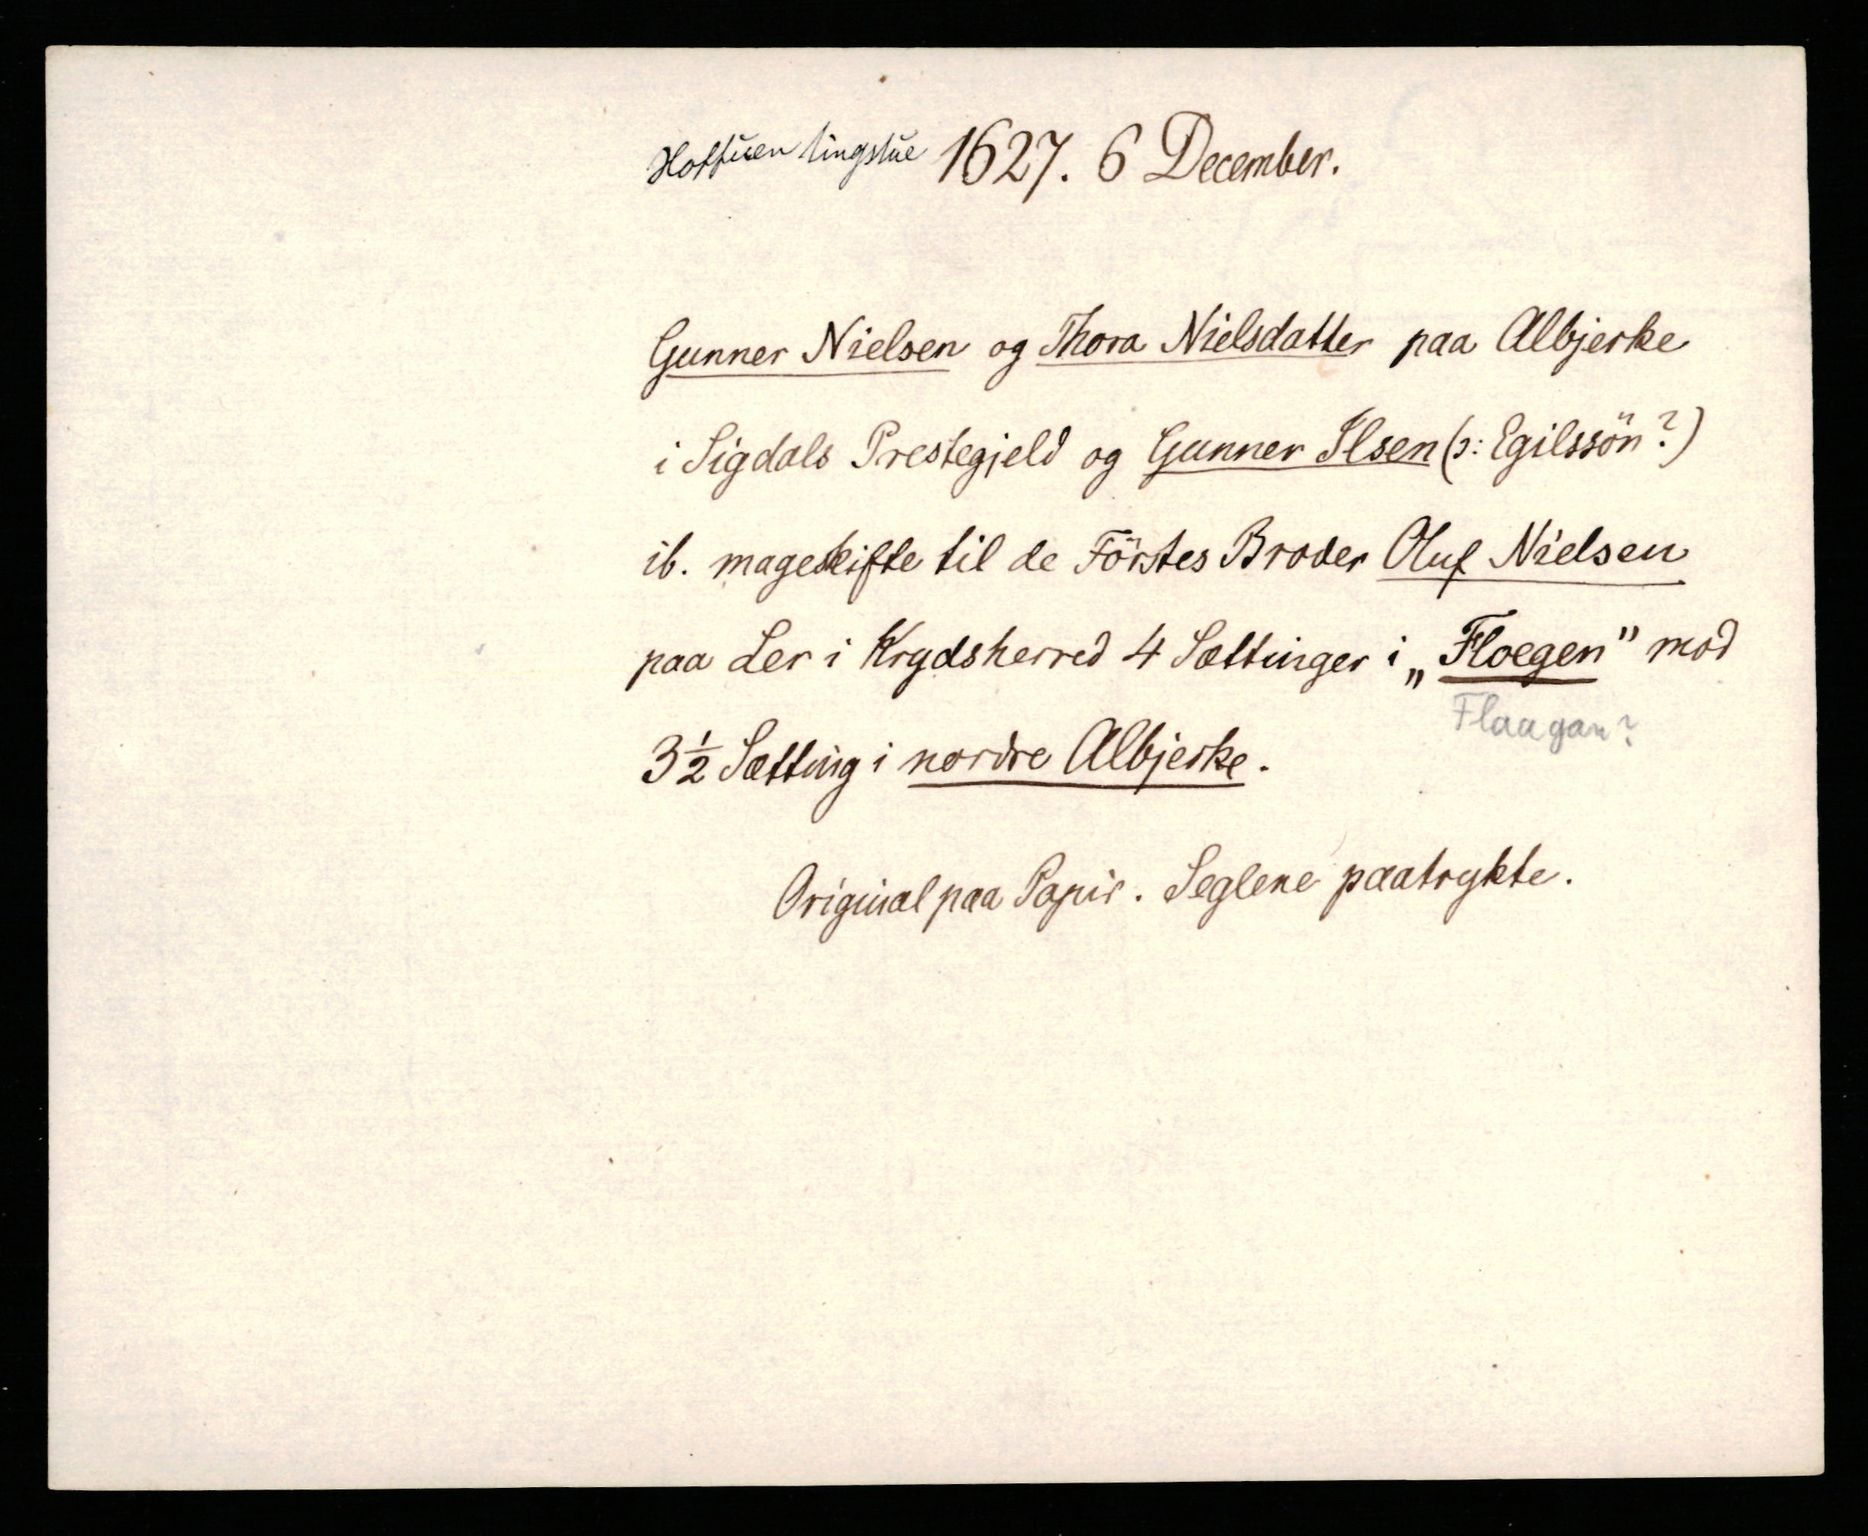 Hoffuen tingstue 1627. 6 December.
Gunner Nielsen og Thora Nielsdatter paa Albjerke
i Sigdals Prestegjeld og Gunner Ilsen (ɔ: Egilssön?)
ib. mageskifte til de Förstes Broder Oluf Nielsen
paa Ler i Krydsherred 4 Sættinger i „Floegen” mod
Flaagan?
3½ Sætting i nordre Albjerke.
Original paa Papir. Seglene paatrykte.